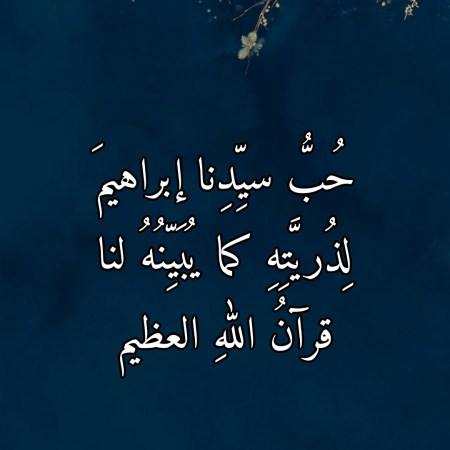 حُبُّ سيِّدِنا إبراهيمَ
لِذُريَّتِهِ كما يُبَيِّنُهُ لنا
قرآنُ اللهِ العظيم